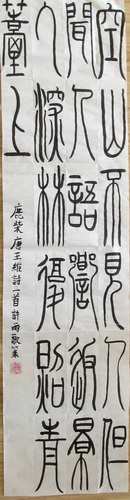 空山不見人但
聞人語響返景
入深林復照青
薹上
鹿柴唐王維詩一首許雨歌篆